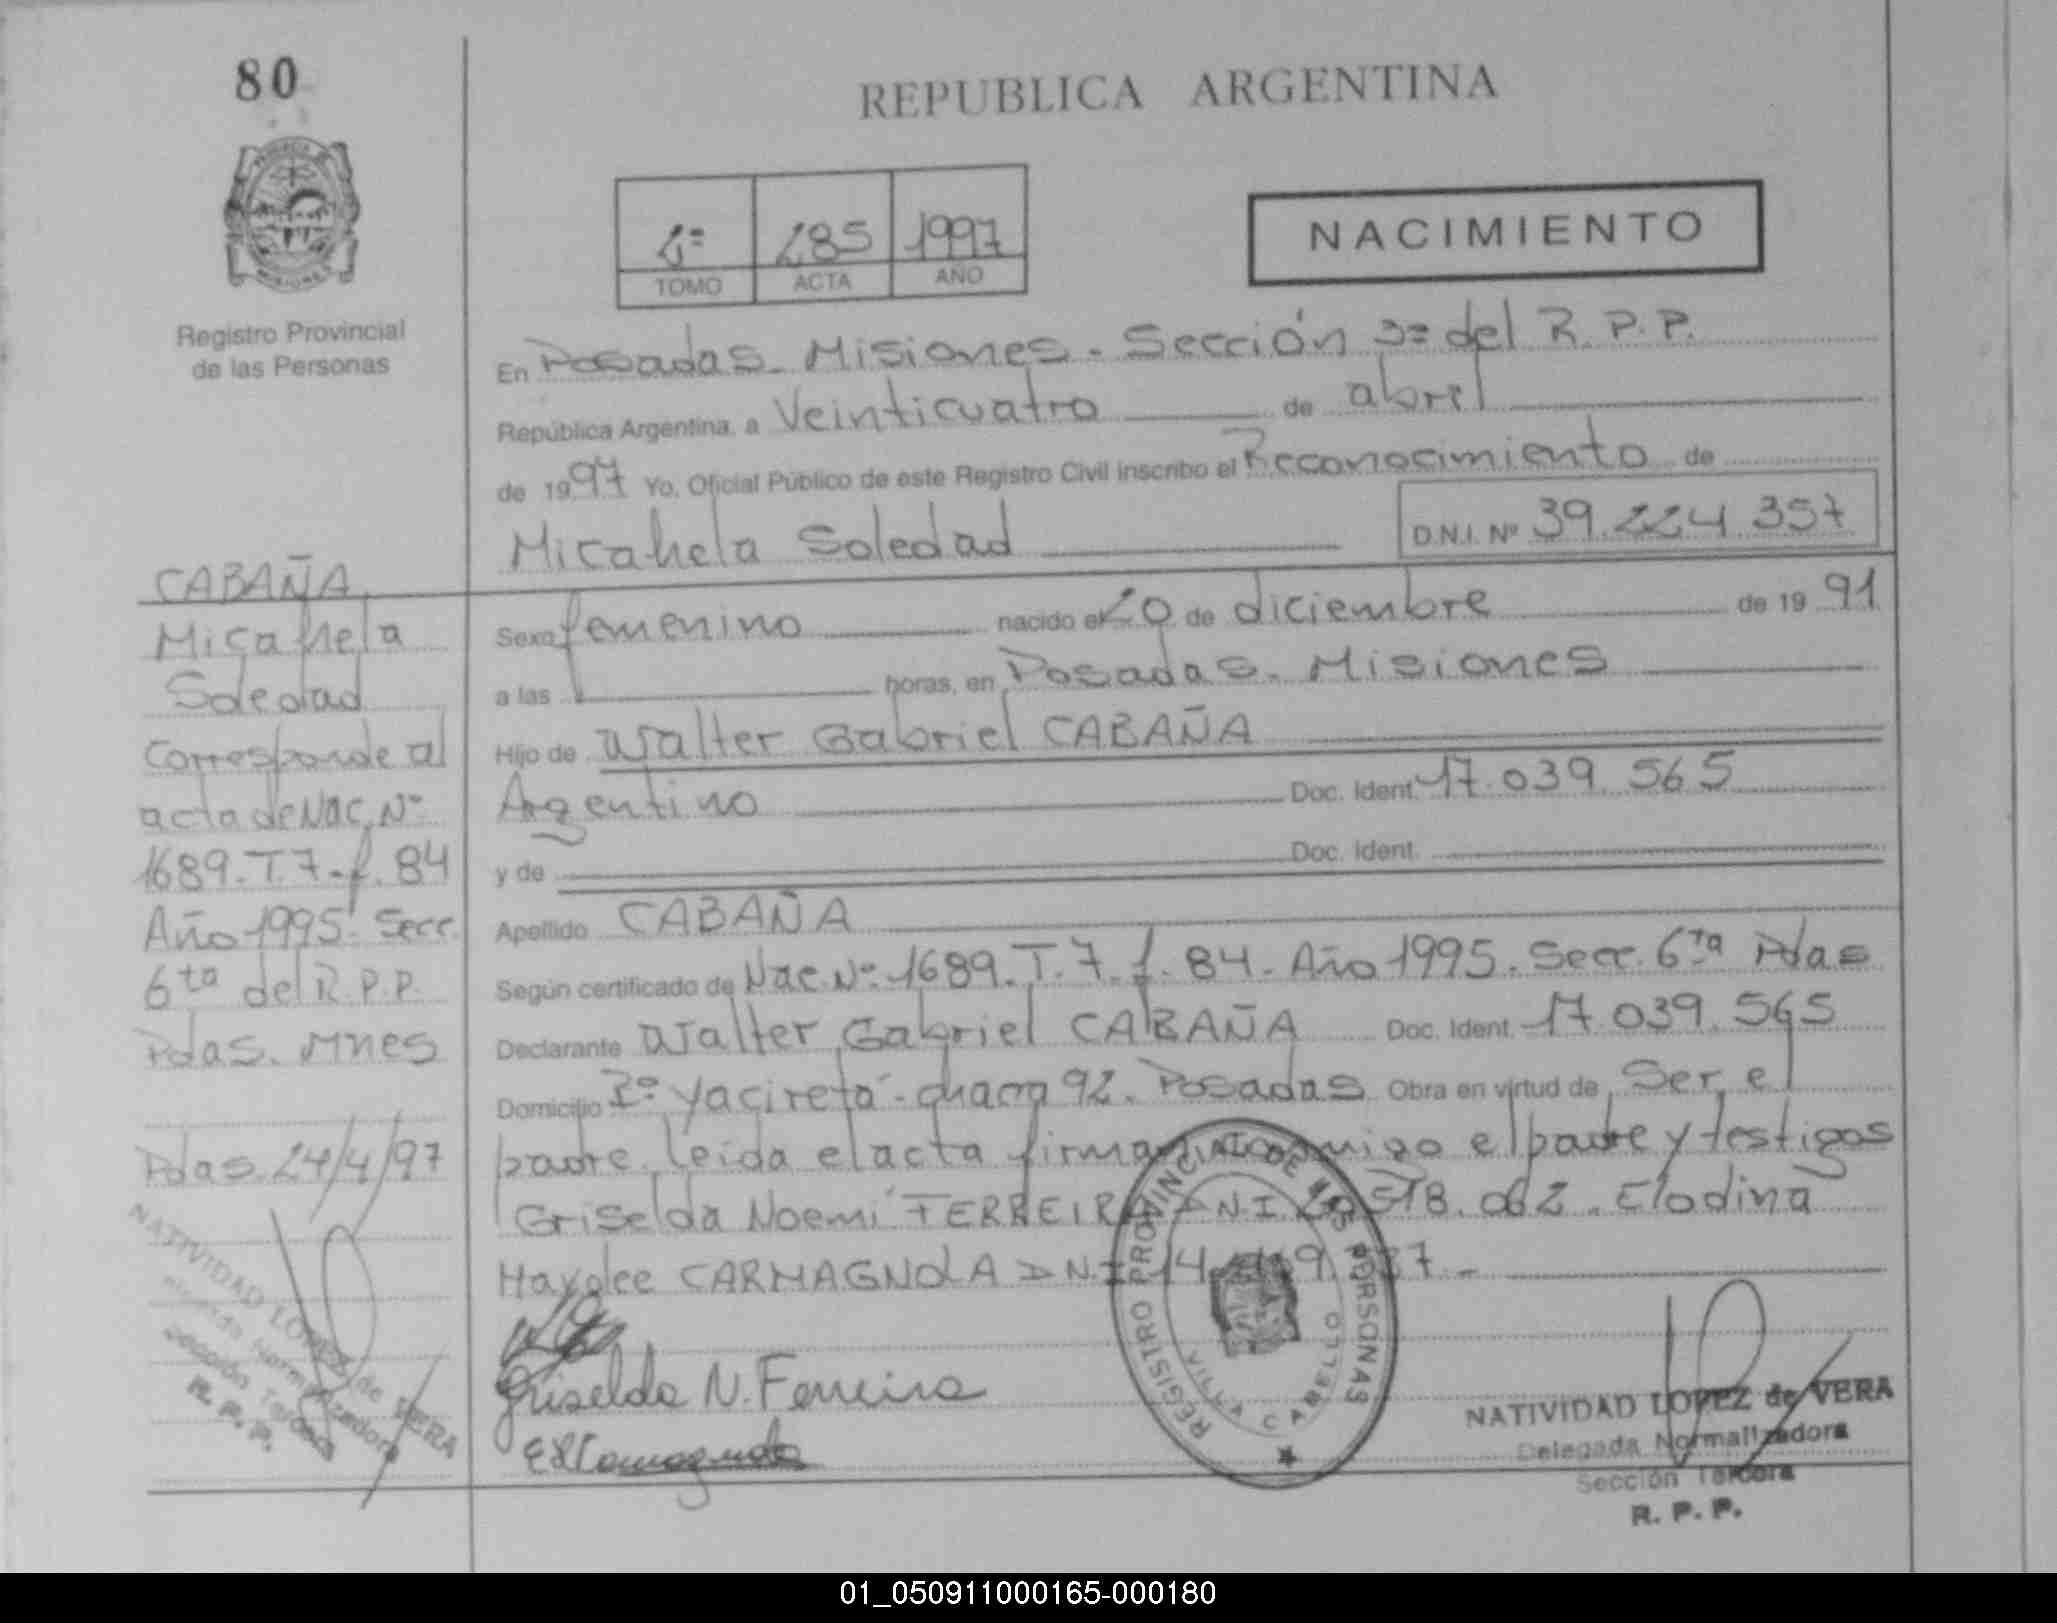 80
REPUBLICA ARGENTINA
PROVINCIA DE
MISIONES
Registro Provincial
de las Personas
285 1997
TOMO ACTA AÑO
NACIMIENTO
En Posadas. Misiones. Sección 3ª del R.P.P.
República Argentina, a Veinticuatro de abril
de 1997 Yo, Oficial Público de este Registro Civil inscribo el Reconocimiento de
Micahela Soledad D.N.I. Nº 39.224.357
Sexo femenino nacido el 20 de diciembre de 1991
a las horas, en Posadas. Misiones
Hijo de Walter Gabriel CABAÑA
Argentino Doc. Ident. 17.039.565
y de Doc. Ident.
Apellido CABAÑA
Según certificado de Nac. Nº 1689. T. 7. f. 84. Año 1995. Secc. 6ta Pdas
Declarante Walter Gabriel CABAÑA Doc. Ident. 17.039.565
Domicilio Bº Yacireta - chacra 92. Posadas Obra en virtud de Ser el
padre. leida el acta firman conmigo el padre y testigos
Griselda Noemi FERREIRA DNI 518.062. Elodina
Haydee CARMAGNOLA DNI 14
CABAÑA
Micahela
Soledad
Corresponde al
acta de Nac. Nº
1689. T. 7. f. 84
Año 1995. Secc.
6ta del R.P.P.
Pdas. Mnes
Pdas. 24/4/97
NATIVIDAD LOPEZ de VERA
Delegada Normalizadora
Sección Tercera
R. P. P.
Griselda N. Ferreira
REGISTRO PROVINCIAL DE LAS PERSONAS
VILLA CABELLO
NATIVIDAD LOPEZ de VERA
Delegada Normalizadora
Sección Tercera
R. P. P.
01_050911000165-000180